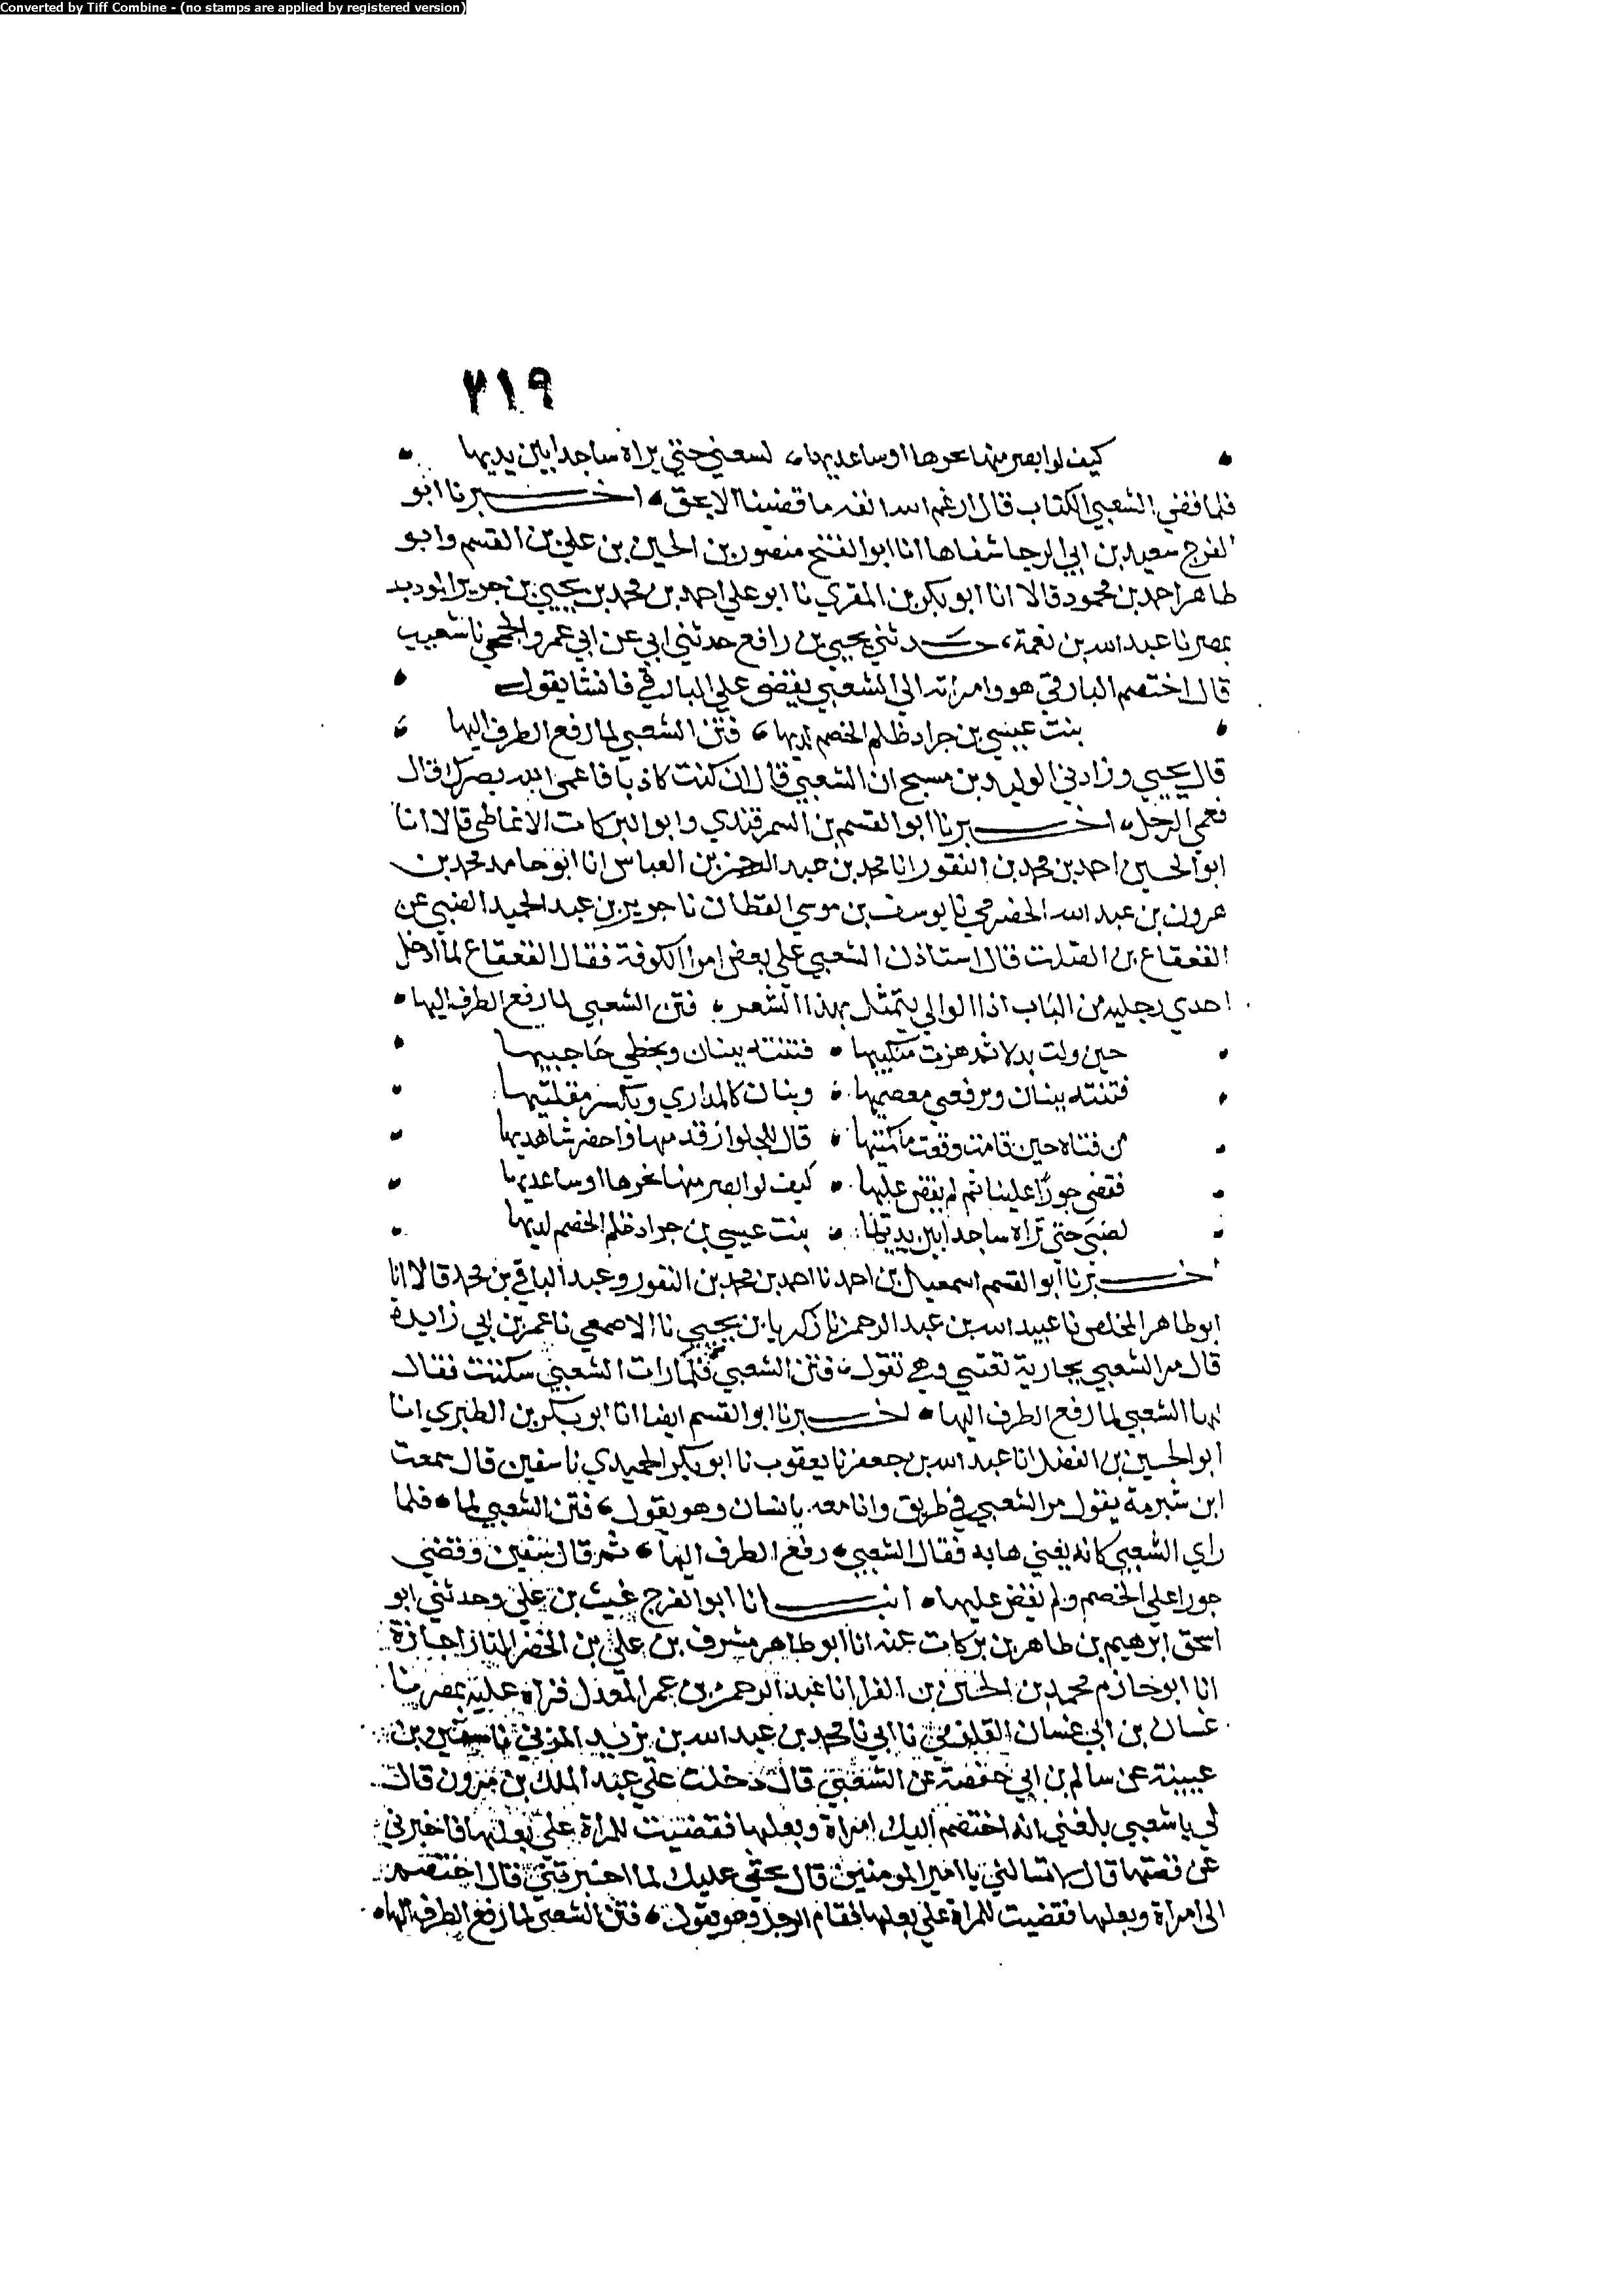 Converted by Tiff Combine - (no stamps are applied by registered version)
٢١٩
كيف لو ابصر منها نحرها او ساعديها لسعي حتى يراه ساجدا بين يديها
فلما الشعبي الكتاب قال ارغم الله انفه ما قضينا الا بحق اخبرنا ابو
الفرج سعيد بن ابي الرجا شفاها انا ابو الفتح منصور بن الحسين بن علي بن القسم وابو
طاهر احمد بن محمود قالا انا ابو بكر بن المقري نا ابو علي احمد بن محمد بن يحيى بن جرير
بمصر نا عبد الله بن نعمة حدثني يحيى بن رافع حدثني ابي عن ابي عمرو نا شعيب
قال اختصم البارقي هو وامراته الى الشعبي يقضي علي البارقي فانشا يقول
بنت عيسى بن جراد ظلم الخصم لديها فتن الشعبي لما رفع الطرف اليها
قال يحيى وزادني الوليد بن مسبح ان الشعبي قال ان كنت كاذبا فاعمى الله بصرك قال
فعمي الرجل اخبرنا ابو القسم بن السمرقندي وابو البركات الانماطي قالا انا
ابو الحسين احمد بن محمد بن النقور انا محمد بن عبد الرحمن بن العباس انا ابو حامد محمد بن
هرون بن عبد الله الحضرمي نا يوسف بن موسى القطان نا جرير بن عبد الحميد الضبي عن
القعقاع بن الصلت قال استاذن الشعبي على بعض امرا الكوفة فقال القعقاع لما ادخل
احدي رجليه من الباب اذا الوالي يتمثل بهذا الشعر فتن الشعبي لما رفع الطرف اليها
حين ولت بدلا ثم هزت منكبيها فتنته ببنان وبخطي حاجبيها
فتنته ببنان وبرفعي معصميها وبنان كالمداري وبكسر مقلتيها
من فتاة حين قامت رفعت ماكمتيها قال للجلواز قدمها واحضر شاهديها
فقضى جورا علينا ثم لم يقض عليها كيف لو ابصر منها نحرها او ساعديها
لصبى حتى تراه ساجدا بين يديها بنت عيسى بن جراد ظلم الخصم لديها
اخبرنا ابو القسم اسمعيل بن احمد نا احمد بن محمد بن النقور وعبد الباقي بن محمد قالا انا
ابو طاهر المخلص نا عبيد الله بن عبد الرحمن نا زكريا بن يحيى نا الاصمعي نا عمر بن ابي زايدة
قال مر الشعبي بجارية تغني وهي تقول فتن الشعبي فلما رات الشعبي سكتت فقال
لها الشعبي لما رفع الطرف اليها اخبرنا ابو القسم ايضا انا ابو بكر بن الطبري انا
ابو الحسين بن الفضل انا عبد الله بن جعفر نا يعقوب نا ابو بكر الحميدي نا سفين قال سمعت
ابن شبرمة يقول مر الشعبي في طريق وانا معه بانسان وهو يقول فتن الشعبي لما فلما
راي الشعبي كانه يعني هابه فقال الشعبي رفع الطرف اليها ثم قال سفين وقضى
جورا علي الخصم ولم يقض عليها انبانا ابو الفرج غيث بن علي وحدثني ابو
اسحق ابرهيم بن طاهر بن بركات عنه انا ابو طاهر مشرف بن علي بن الخضر التمار اجازة
انا ابو خازم محمد بن الحسين بن الفرا انا عبد الرحمن بن عمر المعدل قراة عليه بمصر نا
غسان بن ابي غسان القلزمي نا ابي نا محمد بن عبد الله بن يزيد المزني نا سفين بن
عيينة عن سالم بن ابي حفصة عن الشعبي قال دخلت علي عبد الملك بن مرون قال
لي يا شعبي بلغني انه اختصم اليك امراة وبعلها فقضيت للمراة علي بعلها فاخبرني
عن قصتها قال لا تسالني يا امير المومنين قال بحقي عليك لما اخبرتني قال اختصم
الى امراة وبعلها فقضيت للمراة على بعلها فقام الرجل وهو يقول فتن الشعبي لما رفع الطرف اليها